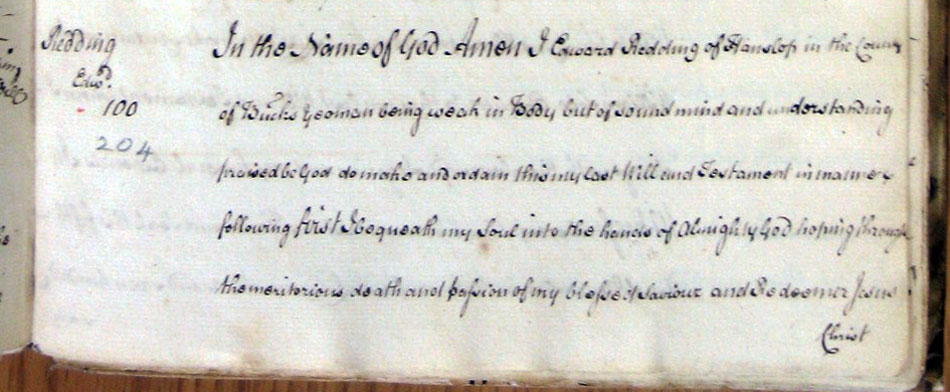 Redding
Edwd.
100
204
In the Name of God Amen I Edward Redding of Hanslop in the County
of Bucks Yeoman being weak in Body but of sound mind and understanding
praised be God do make and ordain this my last Will and Testament in manner
following first I bequeath my Soul into the hands of Almighty God hoping through
the meritorious death and passion of my blessed Saviour and Redeemer Jesus
Christ